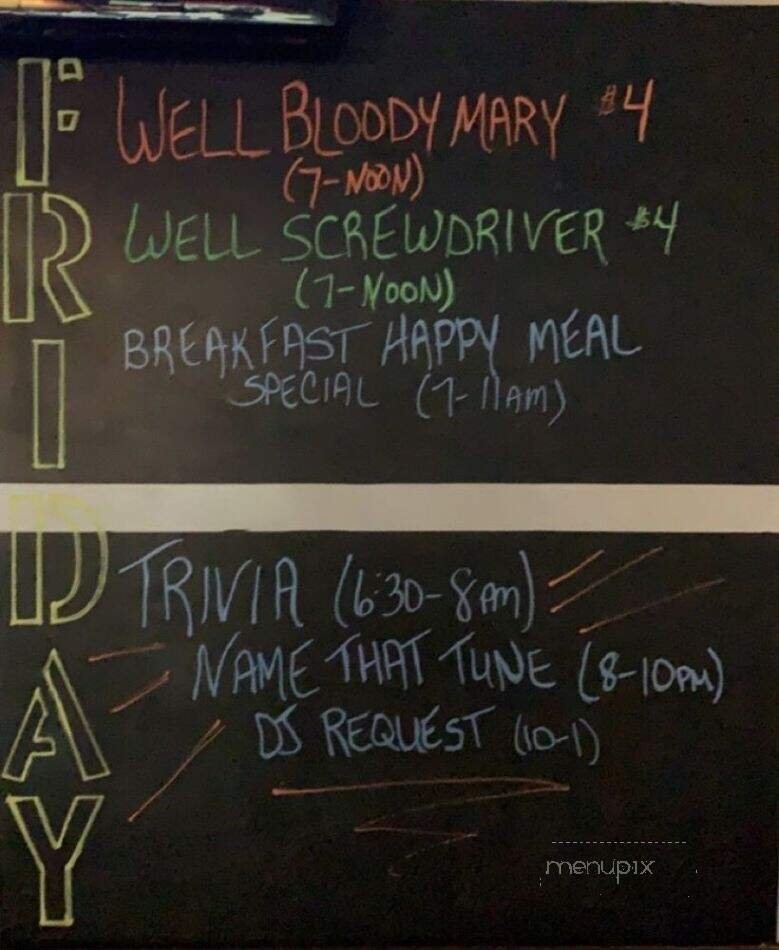 FRIDAY
WELL BLOODY MARY $4
(7-NOON)
WELL SCREWDRIVER $4
(7-NOON)
BREAKFAST HAPPY MEAL
SPECIAL (7-11AM)
TRIVIA (6:30-8PM)
NAME THAT TUNE (8-10PM)
DJ REQUEST (10-1)
menupix